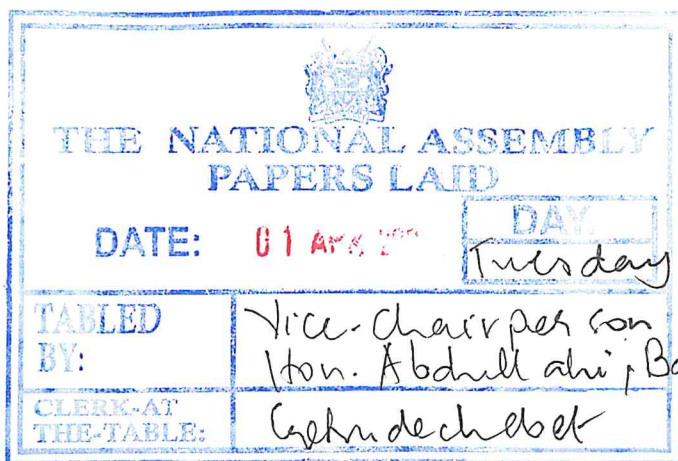 THE NATIONAL ASSEMBLY
PAPERS LAID
DATE: 01 APR
DAY.
Tuesday
TABLED
BY:
Vice-Chairperson
Hon. Abdullahi, Ba
CLERK-AT
THE-TABLE: